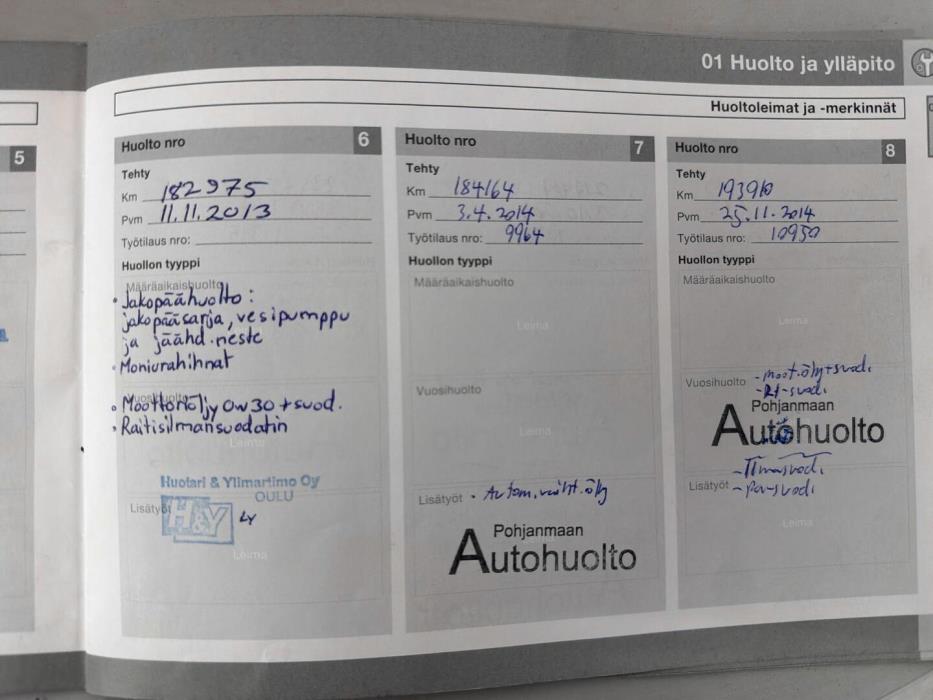 01 Huolto ja ylläpito
Huoltoleimat ja -merkinnät
5
Huolto nro 6
Tehty
Km 182975
Pvm 11.11.2013
Työtilaus nro:
Huollon tyyppi
Määräaikaishuolto
• Jakopäähuolto:
jakopääsarja, vesipumppu
ja jäähd.neste
• Moniurahihnat
Vuosihuolto
• Moottoriöljy 0w30 + suod.
• Raitisilmansuodatin
Leima
Huotari & Ylimartimo Oy
OULU
Lisätyöt
H&Y
Leima
Huolto nro 7
Tehty
Km 184164
Pvm 3.4.2014
Työtilaus nro: 9964
Huollon tyyppi
Määräaikaishuolto
Leima
Vuosihuolto
Leima
Lisätyöt • Autom.vaiht.öljy
Pohjanmaan
Autohuolto
Huolto nro 8
Tehty
Km 193910
Pvm 25.11.2014
Työtilaus nro: 10950
Huollon tyyppi
Määräaikaishuolto
Leima
Vuosihuolto - moot.öljy+suod.
Pohjanmaan
Autohuolto
- Ilmasuod.
Lisätyöt - pa-suod.
Leima